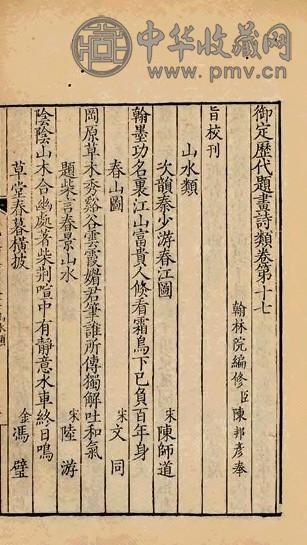 中华收藏网
www.pmv.cn
御定歷代題畫詩類卷第十七
翰林院編修臣陳邦彦奉
旨校刊
山水類
次韻秦少游春江圖 宋陳師道
翰墨功名裏江山富貴人倐看霜鳥下已負百年身
春山圖 宋文同
岡原草木秀谿谷雲霞媚君筆誰所傳獨解吐和氣
題柴言春景山水 宋陸游
陰陰山木合幽處著柴荆喧中有静意水車終日鳴
草堂春暮横披 金馮璧